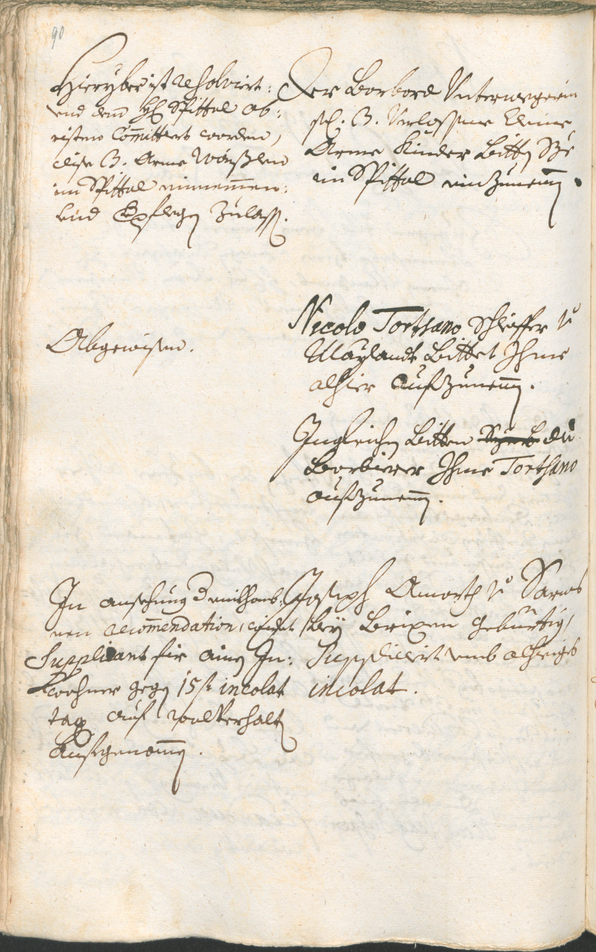 90
Hieryber ist resolvirt:
und dem H: Spittal ob:
ristem Committirt worden,
dise 3. Arme Waißlen
im Spittal einnemmen:
und Zulass.
Der Barbara Unterwegerin
sel. 3. Verlassne kleine
Arme Kinder bitten Sye
im Spittal einzunemmen.
Abgewisen.
Nicolo Tortsano Schleiffer zu
Maylandt bittet Ihme
alhier aufzunemmen.
Ingleichen bitten die
Barbierer Ihme Tortsano
aufzunemmen.
In ansehung
nen recommendation, ist
Supplicant für ainen In:
wohner gegen 15 f: incolat
tax auf wolverhalten
Aufgenommen.
Joseph Amorth zu Sarns
bey Brixen gebürtig,
Supplicirt umb alhiesigs
incolat.